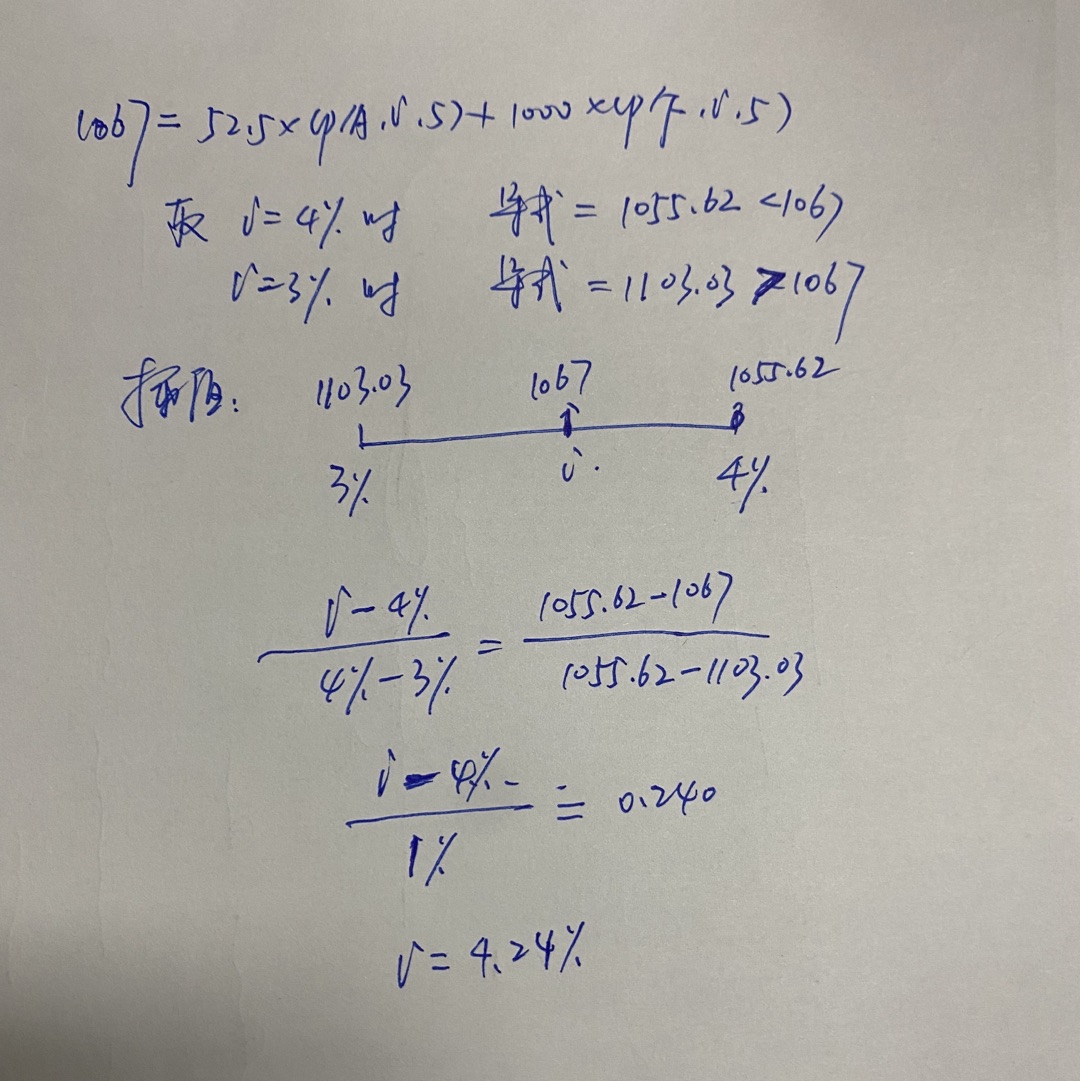 1067=52.5×(P/A.i.5)+1000×(P/F.i.5)
取 i=4% 时 算式=1055.62<1067
i=3% 时 算式=1103.03>1067
1103.03 1067 1055.62
3% i. 4%
i-4% / 4%-3% = 1055.62-1067 / 1055.62-1103.03
i-4% / 1% = 0.240
i=4.24%